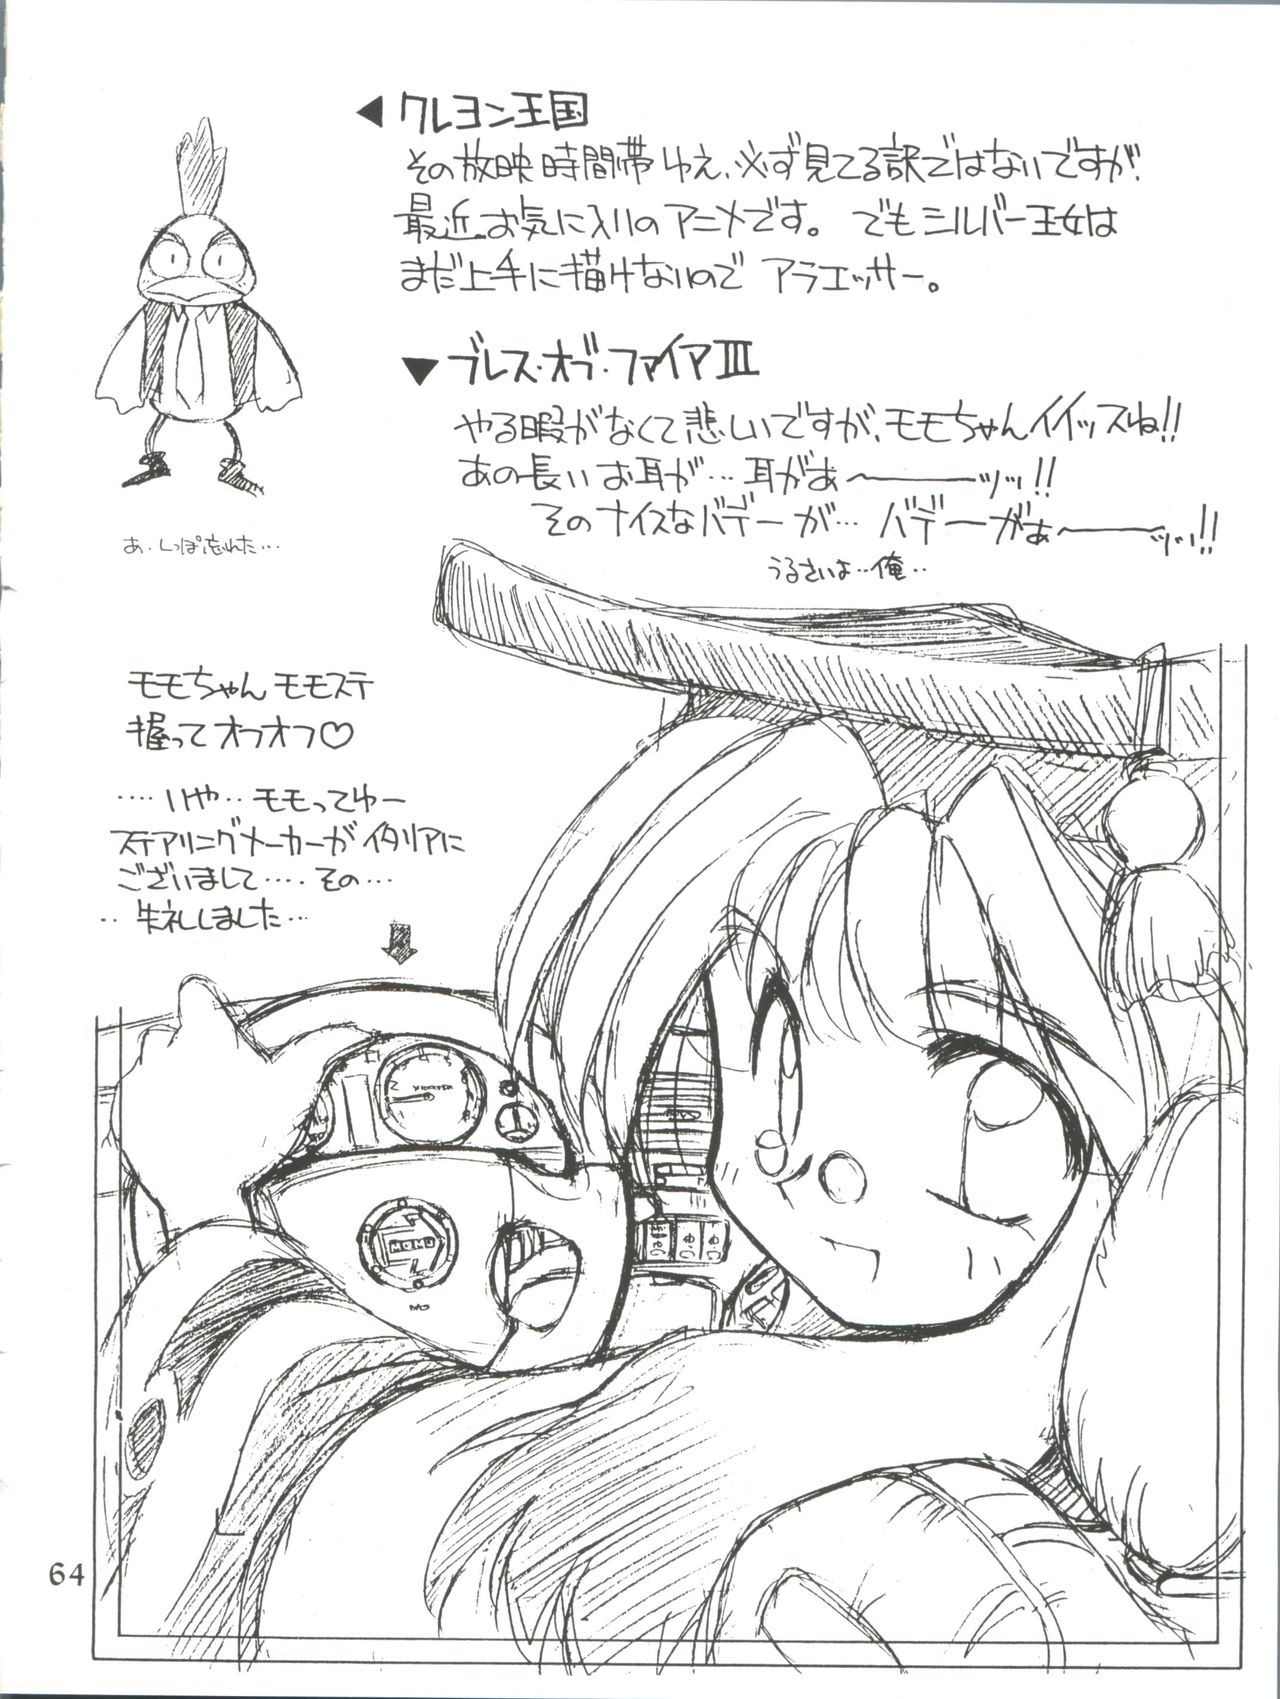 ◀ クレヨン王国
その放映時間帯ゆえ、必ず見てる訳ではないですが、
最近お気に入りのアニメです。 でもシルバー王女は
まだ上手に描けないので アラエッサー。
▼ ブレス・オブ・ファイアⅢ
やる暇がなくて悲しいですが、モモちゃんイイッスね!!
あの長いお耳が… 耳がぁ〜———ッッ!!
そのナイスなバデーが… バデーがぁ〜———ッッ!!
うるさいよ…俺‥
あ、しっぽ忘れた…
モモちゃん モモステ
握って オフオフ♡
‥‥いや‥ モモってゆー
ステアリングメーカーがイタリアに
ございまして‥‥ その…
‥失礼しました…
MOMO
64